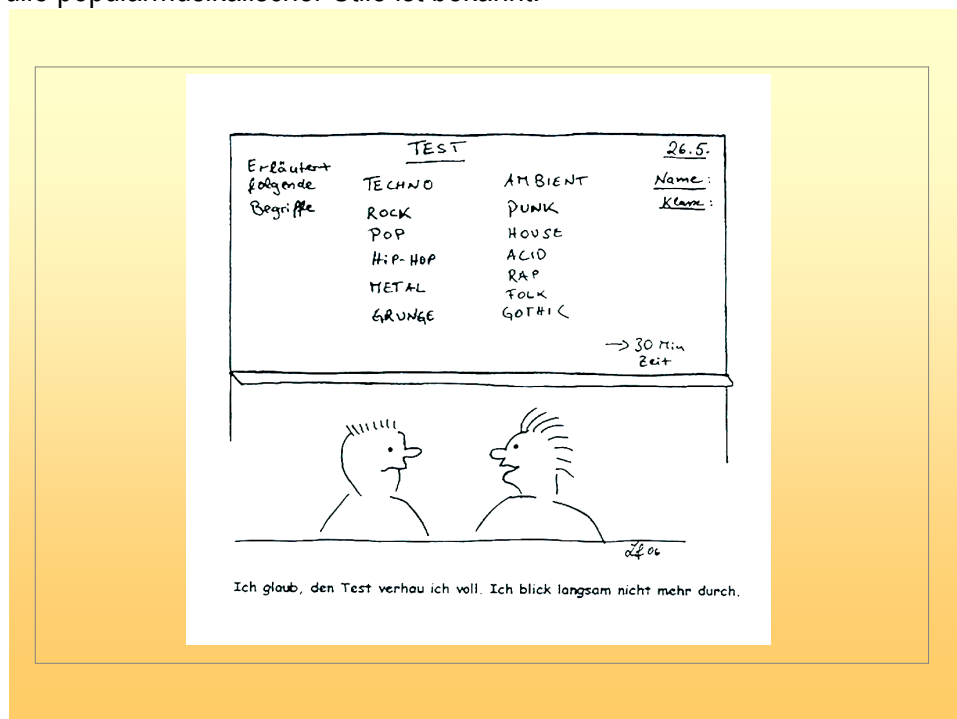 alle popularmusikalischer Stile ist bekannt.
TEST
26.5.
Erläutert
folgende
Begriffe
TECHNO
ROCK
POP
HiP-HOP
METAL
GRUNGE
AMBIENT
PUNK
HOUSE
ACID
RAP
FOLK
GOTHIC
Name:
Klasse:
→ 30 Min
Zeit
06
Ich glaub, den Test verhau ich voll. Ich blick langsam nicht mehr durch.